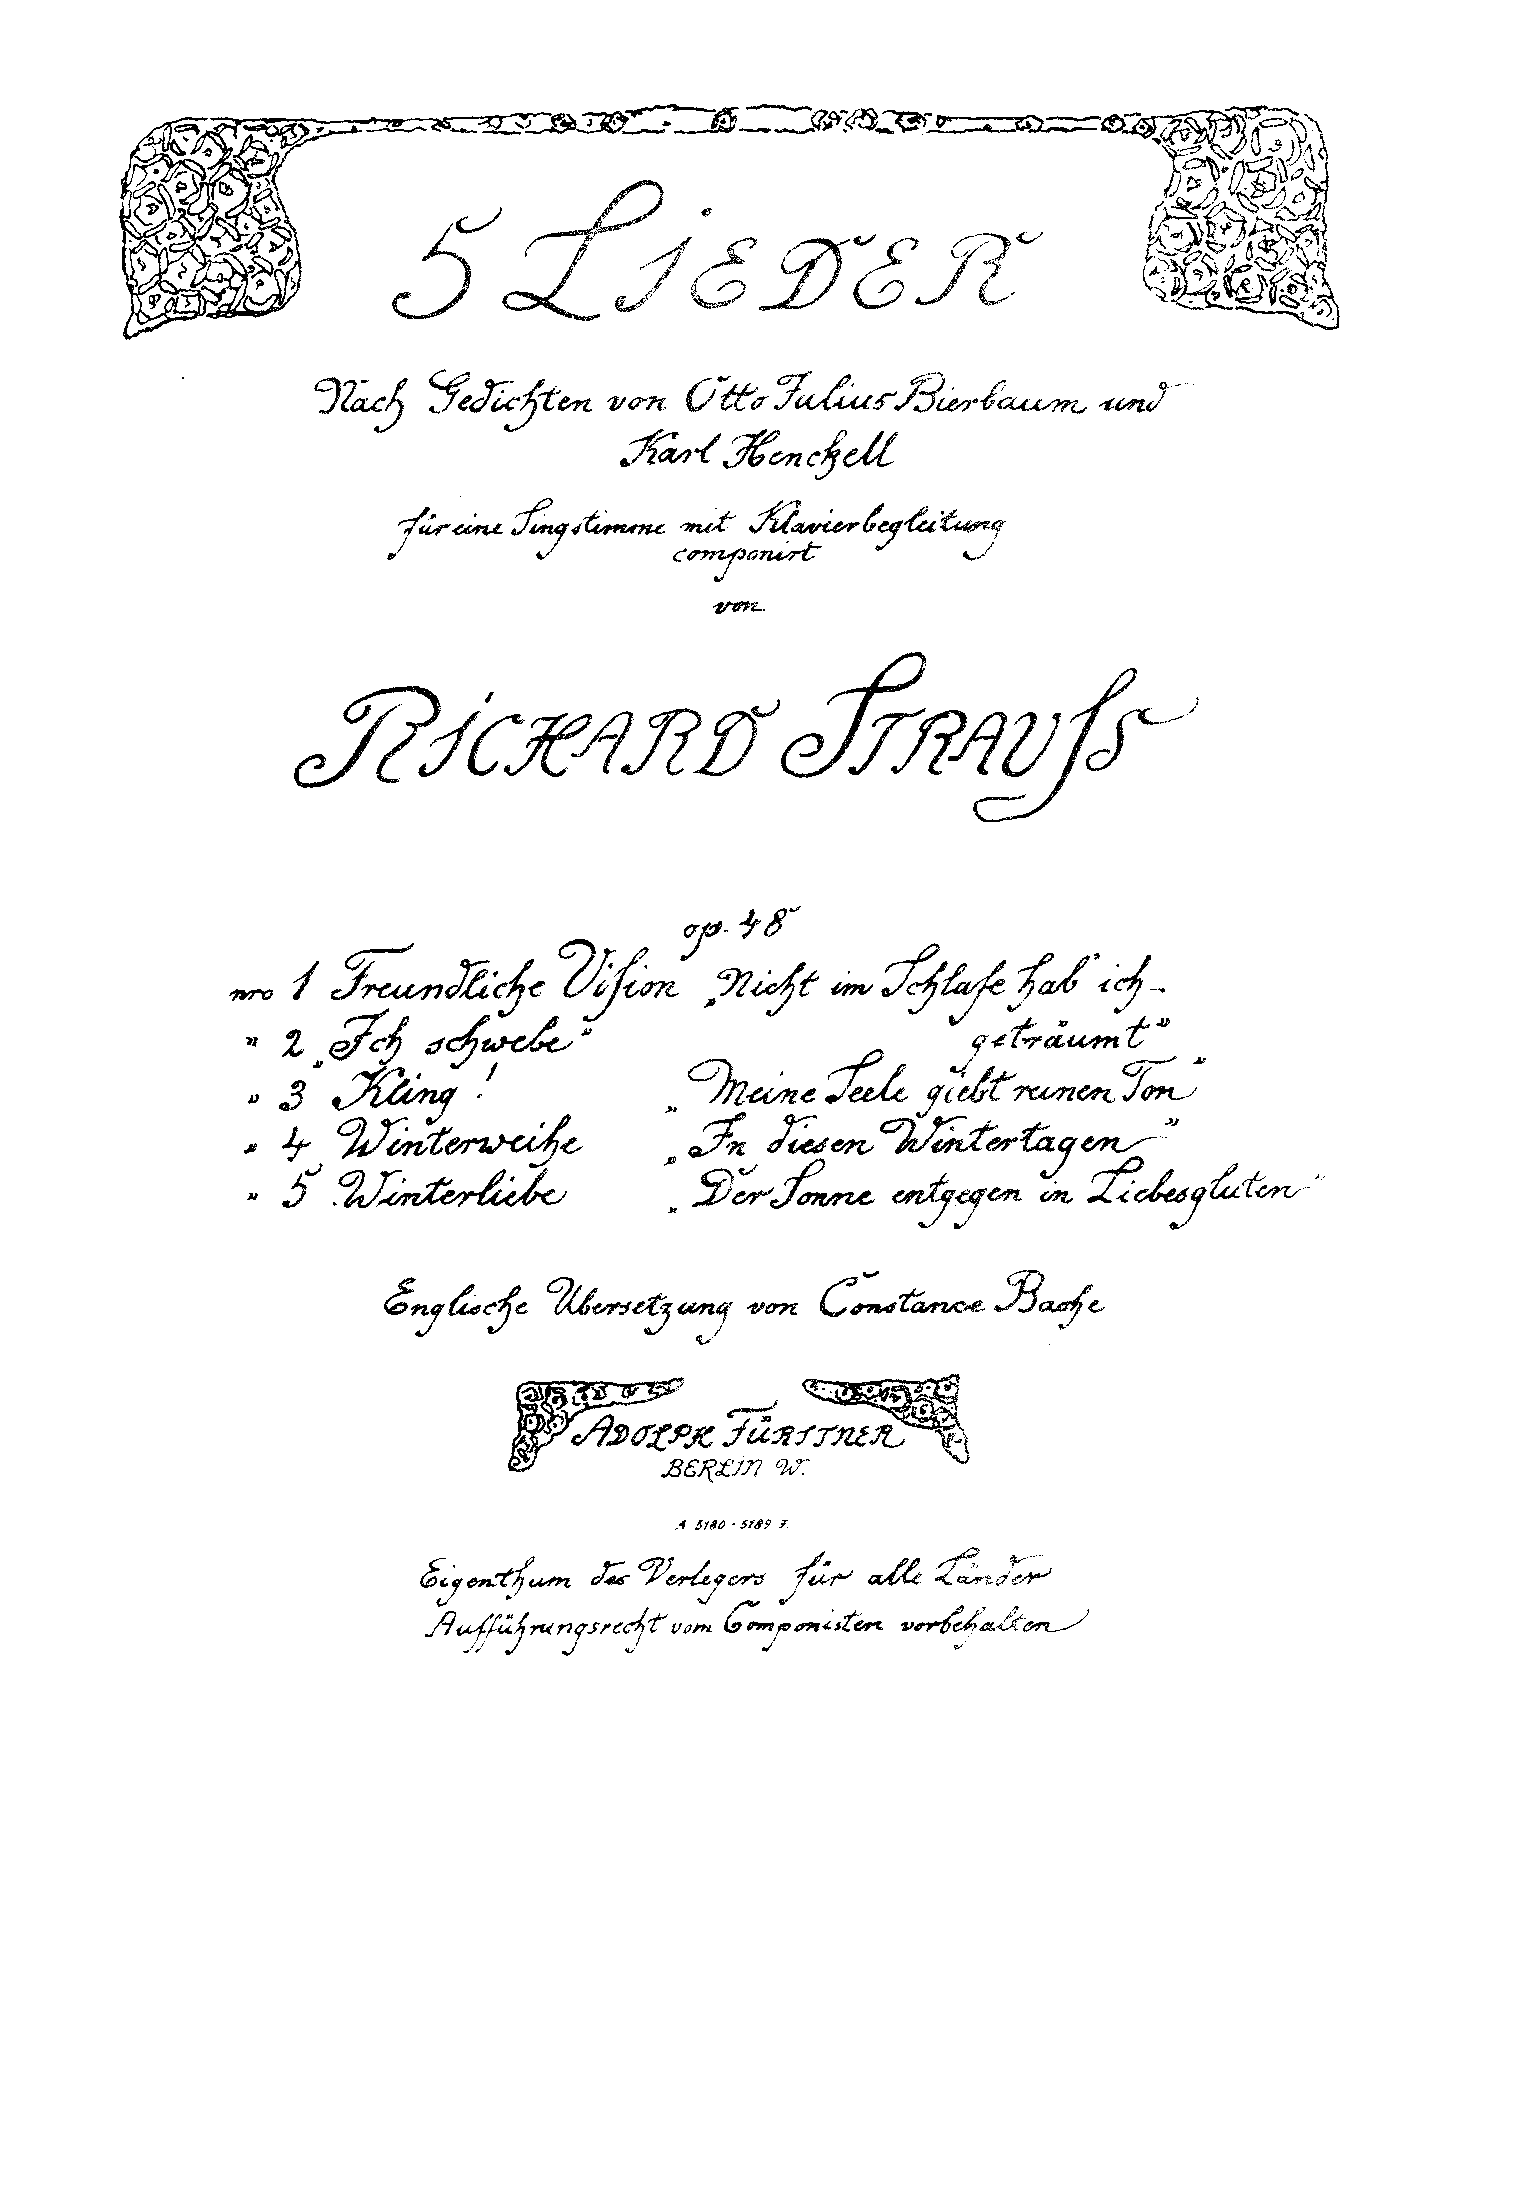 5 LiEDER
Nach Gedichten von Otto Julius Bierbaum und
Karl Henckell
für eine Singstimme mit Klavierbegleitung
componirt
von
RiCHARD STRAUSS
op. 48
nro 1 Freundliche Vision „Nicht im Schlafe hab' ich -
" 2 „Ich schwebe" geträumt"
" 3 Kling! „Meine Seele giebt reinen Ton"
" 4 Winterweihe „In diesen Wintertagen"
" 5 Winterliebe „Der Sonne entgegen in Liebesgluten"
Englische Übersetzung von Constance Bache
ADOLPH FÜRSTNER
BERLiN W.
A 5180 - 5189 F.
Eigenthum des Verlegers für alle Länder
Aufführungsrecht vom Componisten vorbehalten